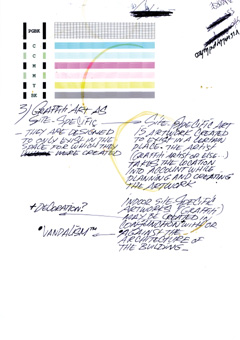 PGBK
C
C
M
M
Y
BK
3) GRAFFITI ART AS
SITE-SPECIFIC
— THEY ARE DESIGNED
TO ONLY EXIST IN THE
SPACE FOR WHICH THEY
WERE CREATED
SITE-SPECIFIC ART
IS ARTWORK CREATED
TO EXIST IN A CERTAIN
PLACE. THE ARTIST
(GRAFFITI ARTIST OR ELSE..)
TAKES THE LOCATION
INTO ACCOUNT WHILE
PLANNING AND CREATING
THE ARTWORK
+ DECORATION?
"VANDALISM™
INDOOR SITE SPECIFIC
ARTWORKS (GRAFFITI)
MAY BE CREATED IN
CONJUNCTION WITH OR
AGAINST THE
ARCHITECTURE OF
THE BUILDING